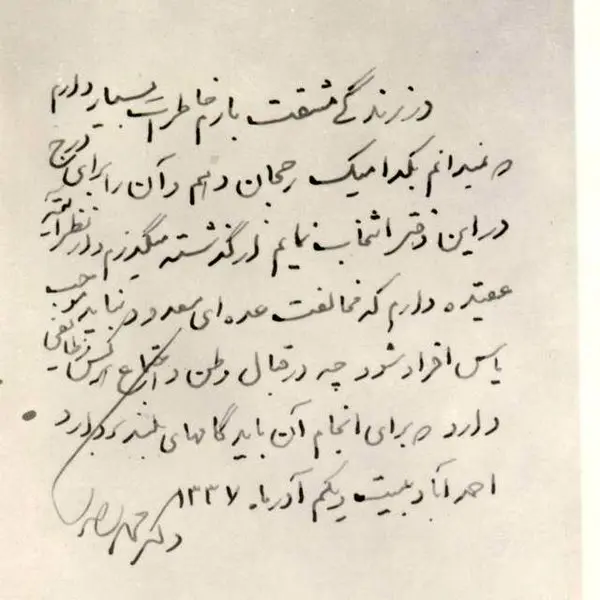 در زندگی مشقت بارم خاطرات بسیار دارم
و نمیدانم بکدامیک رجحان دهم و آن را برای درج
در این دفتر انتخاب نمایم از گذشته میگذرم و از نظر آتیه
عقیده دارم که مخالفت عده ای معدود نباید موجب
یاس افراد شود چه در قبال وطن و اجتماع هر کس وظایفی
دارد و برای انجام آن باید گامهای بلند بردارد
احمدآباد بیست و یکم آذرماه ۱۳۳۷
دکتر محمد مصدق